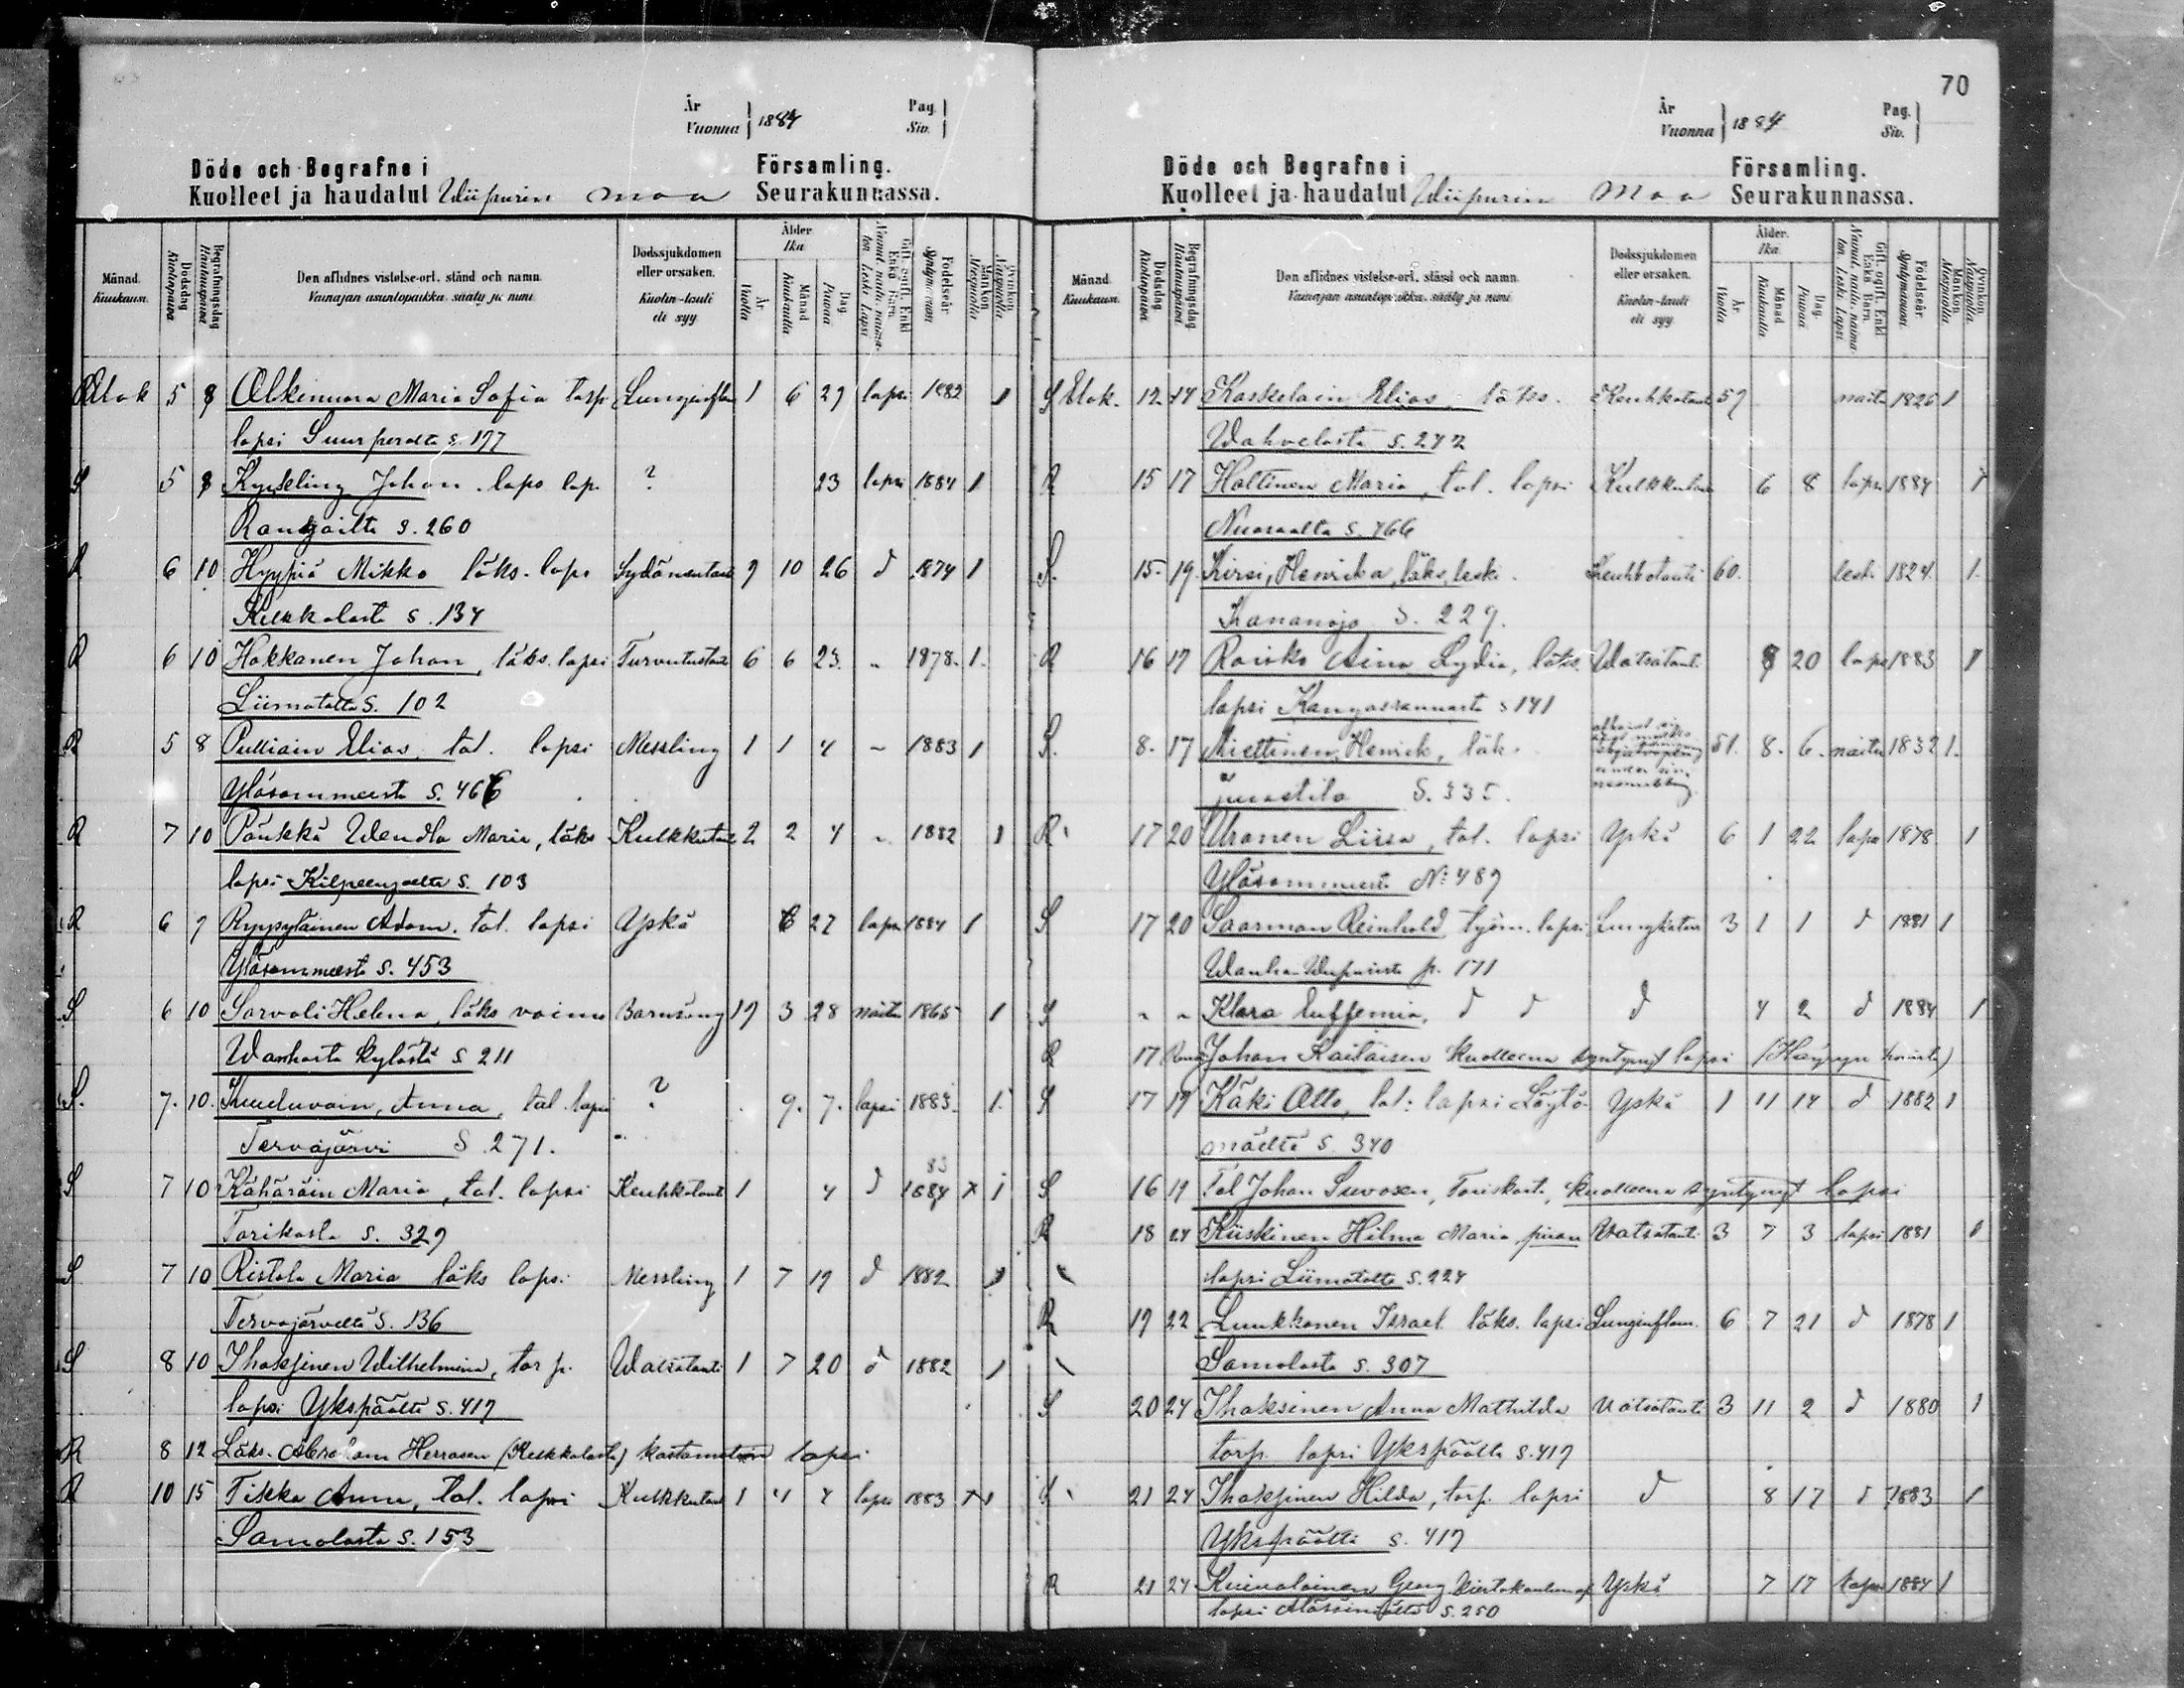 70
År
Vuonna } 1884
Pag.
Siv.
Döde och Begrafne i Församling.
Kuolleet ja haudatut Wiipurin maa Seurakunnassa.
Månad. Kuukausi.
Dödsdag Kuolinpäivä
Begrafningsdag Hautauspäivä
Den aflidnes vistelse-ort, stånd och namn.
Vainajan asuntopaikka, sääty ja nimi
Dödssjukdomen eller orsaken.
Kuolin-tauti eli syy
Ålder. Ikä.
År Vuotta
Månad Kuukautta
Dag. Päivää
Gift, ogift, Enkl. Enka Barn.
Födelseår Syntymävuosi
Mankön Miespuolia
Qvinkön Naispuolia
Elok 5 8 Olkinuora Maria Sofia torp. Lunginflam 1 6 27 lapsi 1882 1
lapsi Suurperolta s. 177
S 5 8 Kynkling Johan laps lap. ? 23 lapsi 1884 1
s. 260
R 6 10 Hyypiä Mikko läks. laps Sydänentauti 9 10 26 d 1874 1
Kilkkalasta s. 134
R 6 10 Hakkanen Johan, läks. lapsi Turvutustauti 6 6 23 " 1878 1
Liimatalta s. 102
R 5 8 Pulliain Elias, tal. lapsi Messling 1 1 4 " 1883 1
Yläsommeesta s. 466
R 7 10 Pänkkä Wendla Maria, läks Kulkkutauti 2 2 4 " 1882 1
lapsi Kilpeenjoelta s. 103
R 6 9 Ryypyläinen Adam, tal. lapsi Yskä 6 27 lapsi 1884 1
Yläsommeesta s. 453
S 6 10 Sarvali Helena, läks vaimo Barnsäng 19 3 28 naitu 1865 1
Wanhasta kylästä s 211
S. 7. 10. Anna, tal. lapsi ? 9. 7. lapsi 1883 1.
Tervajärvi S. 271.
S 7 10 Kähäräin Maria, tal. lapsi Keuhkotauti 1 4 d 1884 83 x 1
Tarikasta s. 329
S 7 10 Ristola Maria läks lapsi Messling 1 7 19 d 1882 1
Tervajärveltä S. 136
S 8 10 Ihaksinen Wilhelmina, torp. Watsatauti 1 7 20 d 1882 1
lapsi Ykspäältä s. 417
R 8 12 Läks. Abraham Herrasen (Kilkkalasta) kastamaton lapsi
R 10 15 Tikka Anna, tal. lapsi Kulkkutauti 1 4 4 lapsi 1883 x 1
Samolasta s. 153
År
Vuonna } 1884
Pag.
Siv.
Döde och Begrafne i Församling.
Kuolleet ja haudatut Wiipurin Maa Seurakunnassa.
Månad. Kuukausi.
Dödsdag Kuolinpäivä
Begrafningsdag Hautauspäivä
Den aflidnes vistelse-ort, stånd och namn.
Vainajan asuntopaikka, sääty ja nimi
Dödssjukdomen eller orsaken.
Kuolin-tauti eli syy
Ålder. Ikä.
År Vuotta
Månad Kuukautta
Dag. Päivää
Gift, ogift, Enkl. Enka Barn.
Födelseår Syntymävuosi
Mankön Miespuolia
Qvinkön Naispuolia
S Elok. 12 14 Kaskelain Elias läks. Keuhkotauti 57 naitu 1826 1
Wahvelasta s. 242
R 15 17 Haltinen Maria, tal. lapsi Kulkkutau 6 8 lapsi 1884 1
Nuoraalta s. 466
S. 15 19 Kirsi, Henrika, läks, leski Keuhkotauti 60. leski 1824 1.
Kananoja S. 229.
R 16 17 Rouko Aina Lydia, läks. Watsataut. 8 20 laps 1883 1
lapsi Kangasrannasta s 141
S. 8. 17 Miettinen, Henrick, läks. 51. 8. 6. naitu 1832 1.
Juustila S. 335.
R 17 20 Uranen Liisa, tal. lapsi Yskä 6 1 22 laps 1878 1
Yläsommeesta No 489
S 17 20 Saarman Reinhold työm. lapsi Lungkatar 3 1 1 d 1881 1
Wanha Wiipurista p. 171
S " " Klara Euffemia, d d d 4 2 d 1884 1
R 17 Johan Kaitaisen kuolleena syntynyt lapsi
S 17 19 Käki Otto, tal: lapsi Löytö- Yskä 1 11 14 d 1882 1
mäeltä s. 340
S 16 19 Tal Johan Suvosen, kuolleena syntynyt lapsi
R 18 24 Kiiskinen Hilma Maria, Watsatauti 3 7 3 lapsi 1881 1
lapsi Liimatalta s. 224
R 19 22 Luukkonen Israel läks. lapsi Lunginflam. 6 7 21 d 1878 1
Samolasta s. 307
S 20 24 Ihaksinen Anna Mathilda Watsatauti 3 11 2 d 1880 1
torp. lapsi Ykspäältä s. 417
S 21 24 Ihaksinen Hilda, torp. lapsi d 8 17 d 1883 1
Ykspäältä s. 417
R 21 24 Kuivalainen Georg Yskä 7 17 lapsi 1884 1
lapsi s. 250